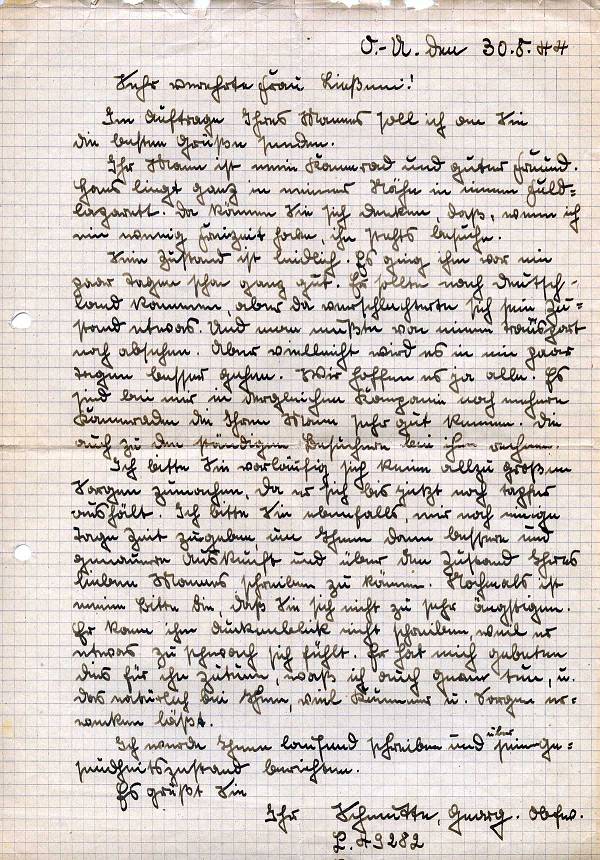 O.-U. den 30.8.44
Sehr verehrte Frau
Im Auftrage Ihres Mannes soll ich an Sie
die besten Grüße senden.
Ihr Mann ist mein Kamerad und guter Freund.
Hans liegt ganz in meiner Nähe in einem Feld=
lazarett. Da können Sie sich denken, daß, wenn ich
ein wenig Freizeit habe, ihn stehts besuche.
Sein Zustand ist leidlich. Es ging ihm vor ein
paar Tagen schon ganz gut. Er sollte nach Deutsch-
land kommen, aber da verschlechterte sich sein Zu=
stand etwas. Und man mußte von einem Transport
noch absehen. Aber vielleicht wird es in ein paar
Tagen besser gehen. Wir hoffen es ja alle. Es
sind bei mir in dergleichen Kompanie noch mehrere
Kameraden die Ihren Mann sehr gut kennen. Die
auch zu den ständigen Besuchern bei ihm rechnen.
Ich bitte Sie vorläufig sich keine allzu großen
Sorgen zumachen, da er sich bis jetzt noch tapfer
aushält. Ich bitte Sie ebenfalls, mir noch einige
Tage Zeit zugeben, um Ihnen dann bessere und
genauere Auskunft und über den Zustand Ihres
lieben Mannes schreiben zu können. Nochmals ist
meine Bitte die, daß Sie sich nicht zu sehr ängstigen.
Er kann im Aukenblick nicht schreiben, weil er
etwas zu schwach sich fühlt. Er hat mich gebeten
dies für ihn zutun, was ich auch gerne tue, u.
das natürlich bei Ihnen, viel Kummer u. Sorgen er=
wecken läßt.
Ich werde Ihnen laufend schreiben und über sein Ge=
sundheitszustand berichten.
Es grüßt Sie
Ihr Georg. Obfw.
L.49282